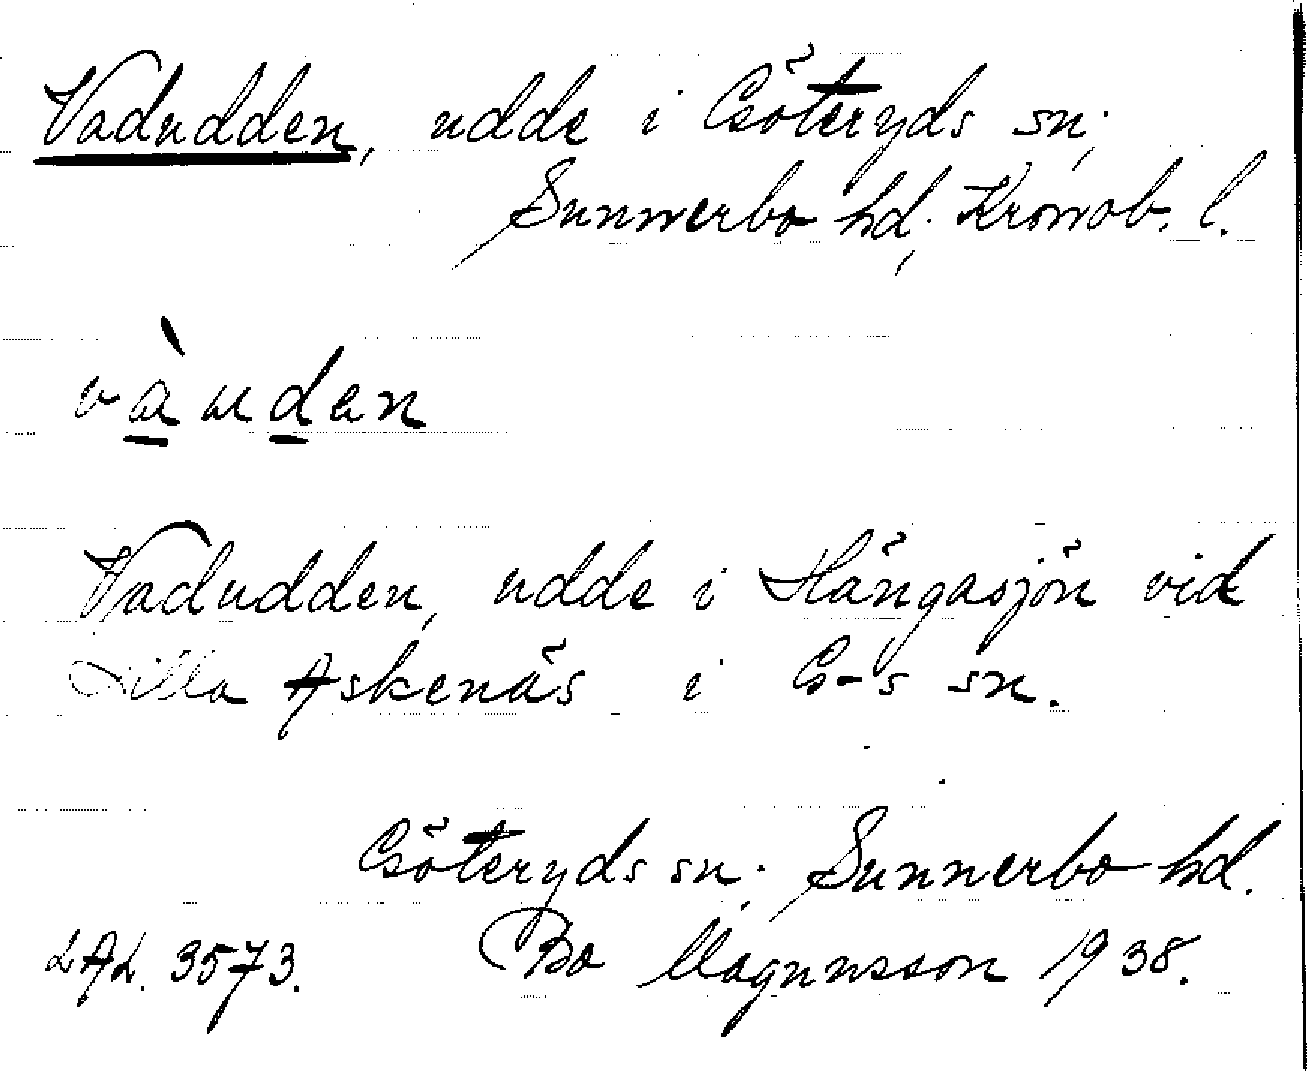 Vadudden, udde i Göteryds sn;
Sunnerbo hd; Kronob. l.
vàuden
Vadudden, udde i Hängasjön vid
Lilla Askenäs i G-s sn.
Göteryds sn; Sunnerbo hd.
LAL. 3573. Bo Magnusson 1938.